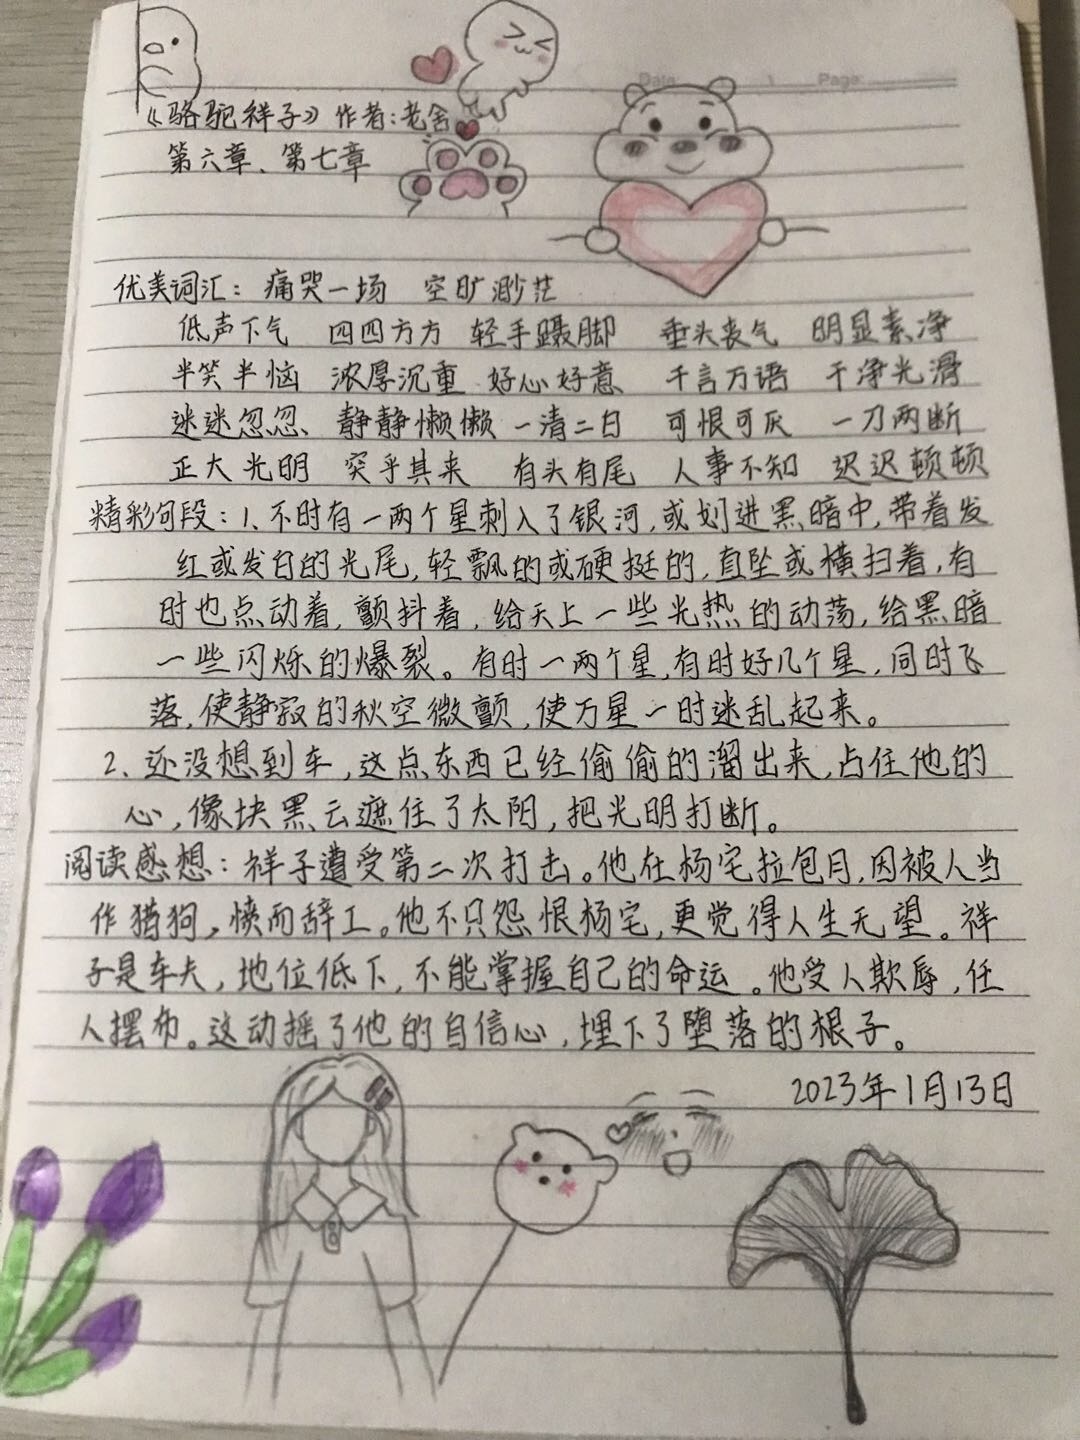 Date: 1 Page:
《骆驼祥子》作者:老舍
第六章、第七章
优美词汇：痛哭一场 空旷渺茫
低声下气 四四方方 轻手蹑脚 垂头丧气 明显素净
半笑半恼 浓厚沉重 好心好意 千言万语 干净光滑
迷迷忽忽 静静懒懒 一清二白 可恨可厌 一刀两断
正大光明 突乎其来 有头有尾 人事不知 迟迟顿顿
精彩句段：1、不时有一两个星刺入了银河,或划进黑暗中,带着发
红或发白的光尾,轻飘的或硬挺的,直坠或横扫着,有
时也点动着,颤抖着,给天上一些光热的动荡,给黑暗
一些闪烁的爆裂。有时一两个星,有时好几个星,同时飞
落,使静寂的秋空微颤,使万星一时迷乱起来。
2、还没想到车,这点东西已经偷偷的溜出来,占住他的
心,像块黑云遮住了太阳,把光明打断。
阅读感想：祥子遭受第二次打击。他在杨宅拉包月,因被人当
作猎狗,愤而辞工。他不只怨恨杨宅,更觉得人生无望。祥
子是车夫,地位低下,不能掌握自己的命运。他受人欺辱,任
人摆布。这动摇了他的自信心,埋下了堕落的根子。
2023年1月13日